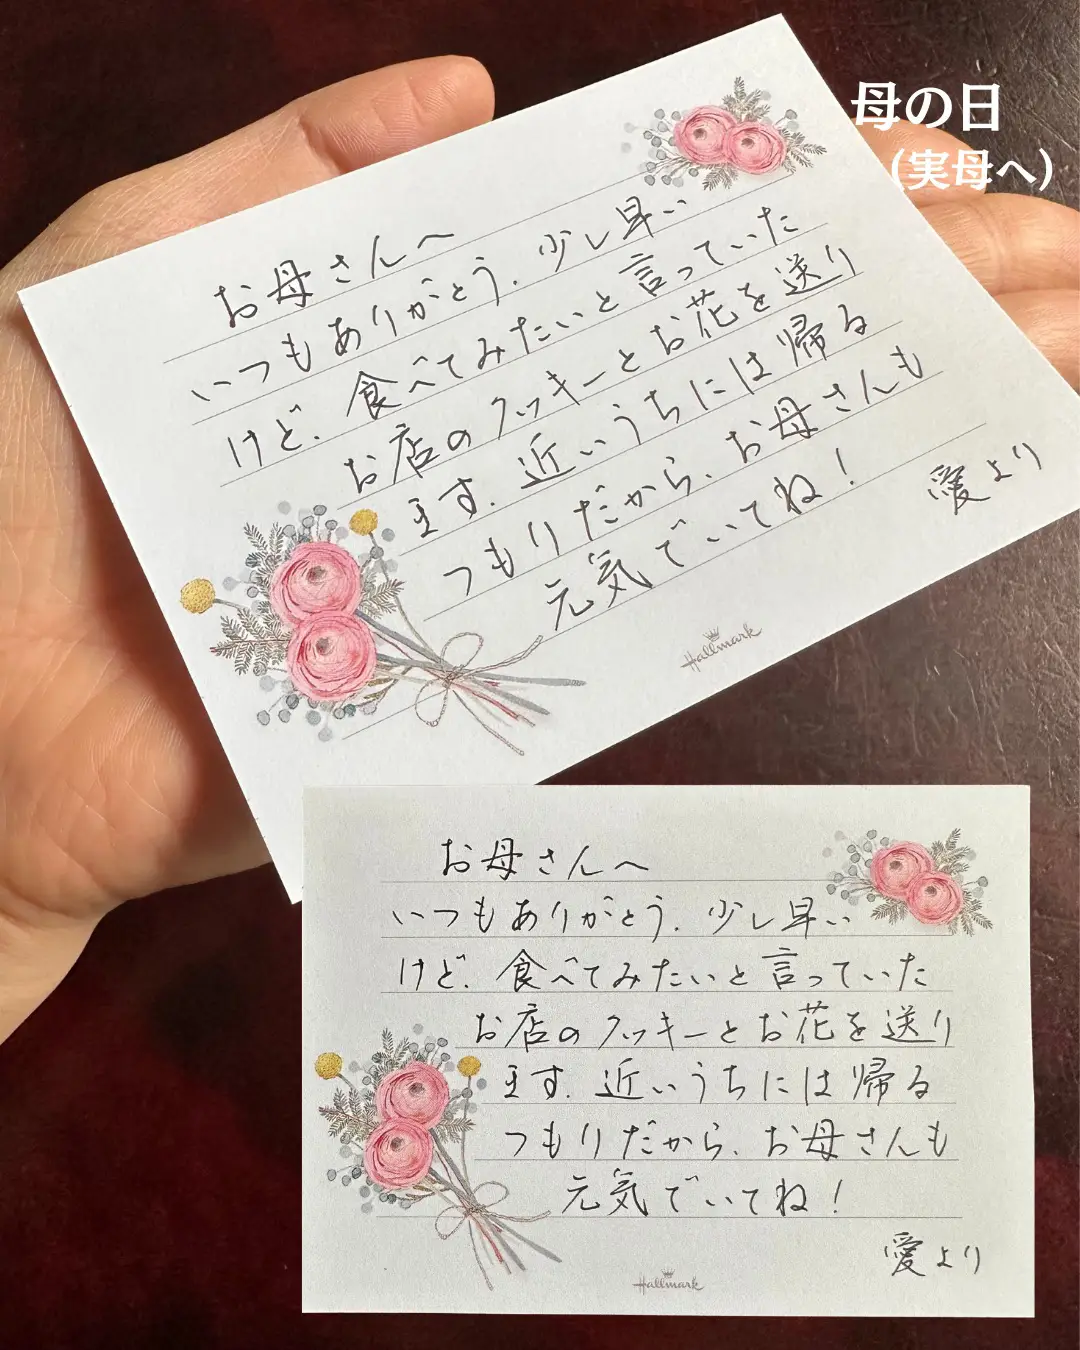 母の日
(実母へ)
お母さんへ
いつもありがとう。少し早い
けど、食べてみたいと言っていた
お店のクッキーとお花を送り
ます。近いうちには帰る
つもりだから、お母さんも
元気でいてね!
愛より
Hallmark
お母さんへ
いつもありがとう。少し早い
けど、食べてみたいと言っていた
お店のクッキーとお花を送り
ます。近いうちには帰る
つもりだから、お母さんも
元気でいてね!
愛より
Hallmark